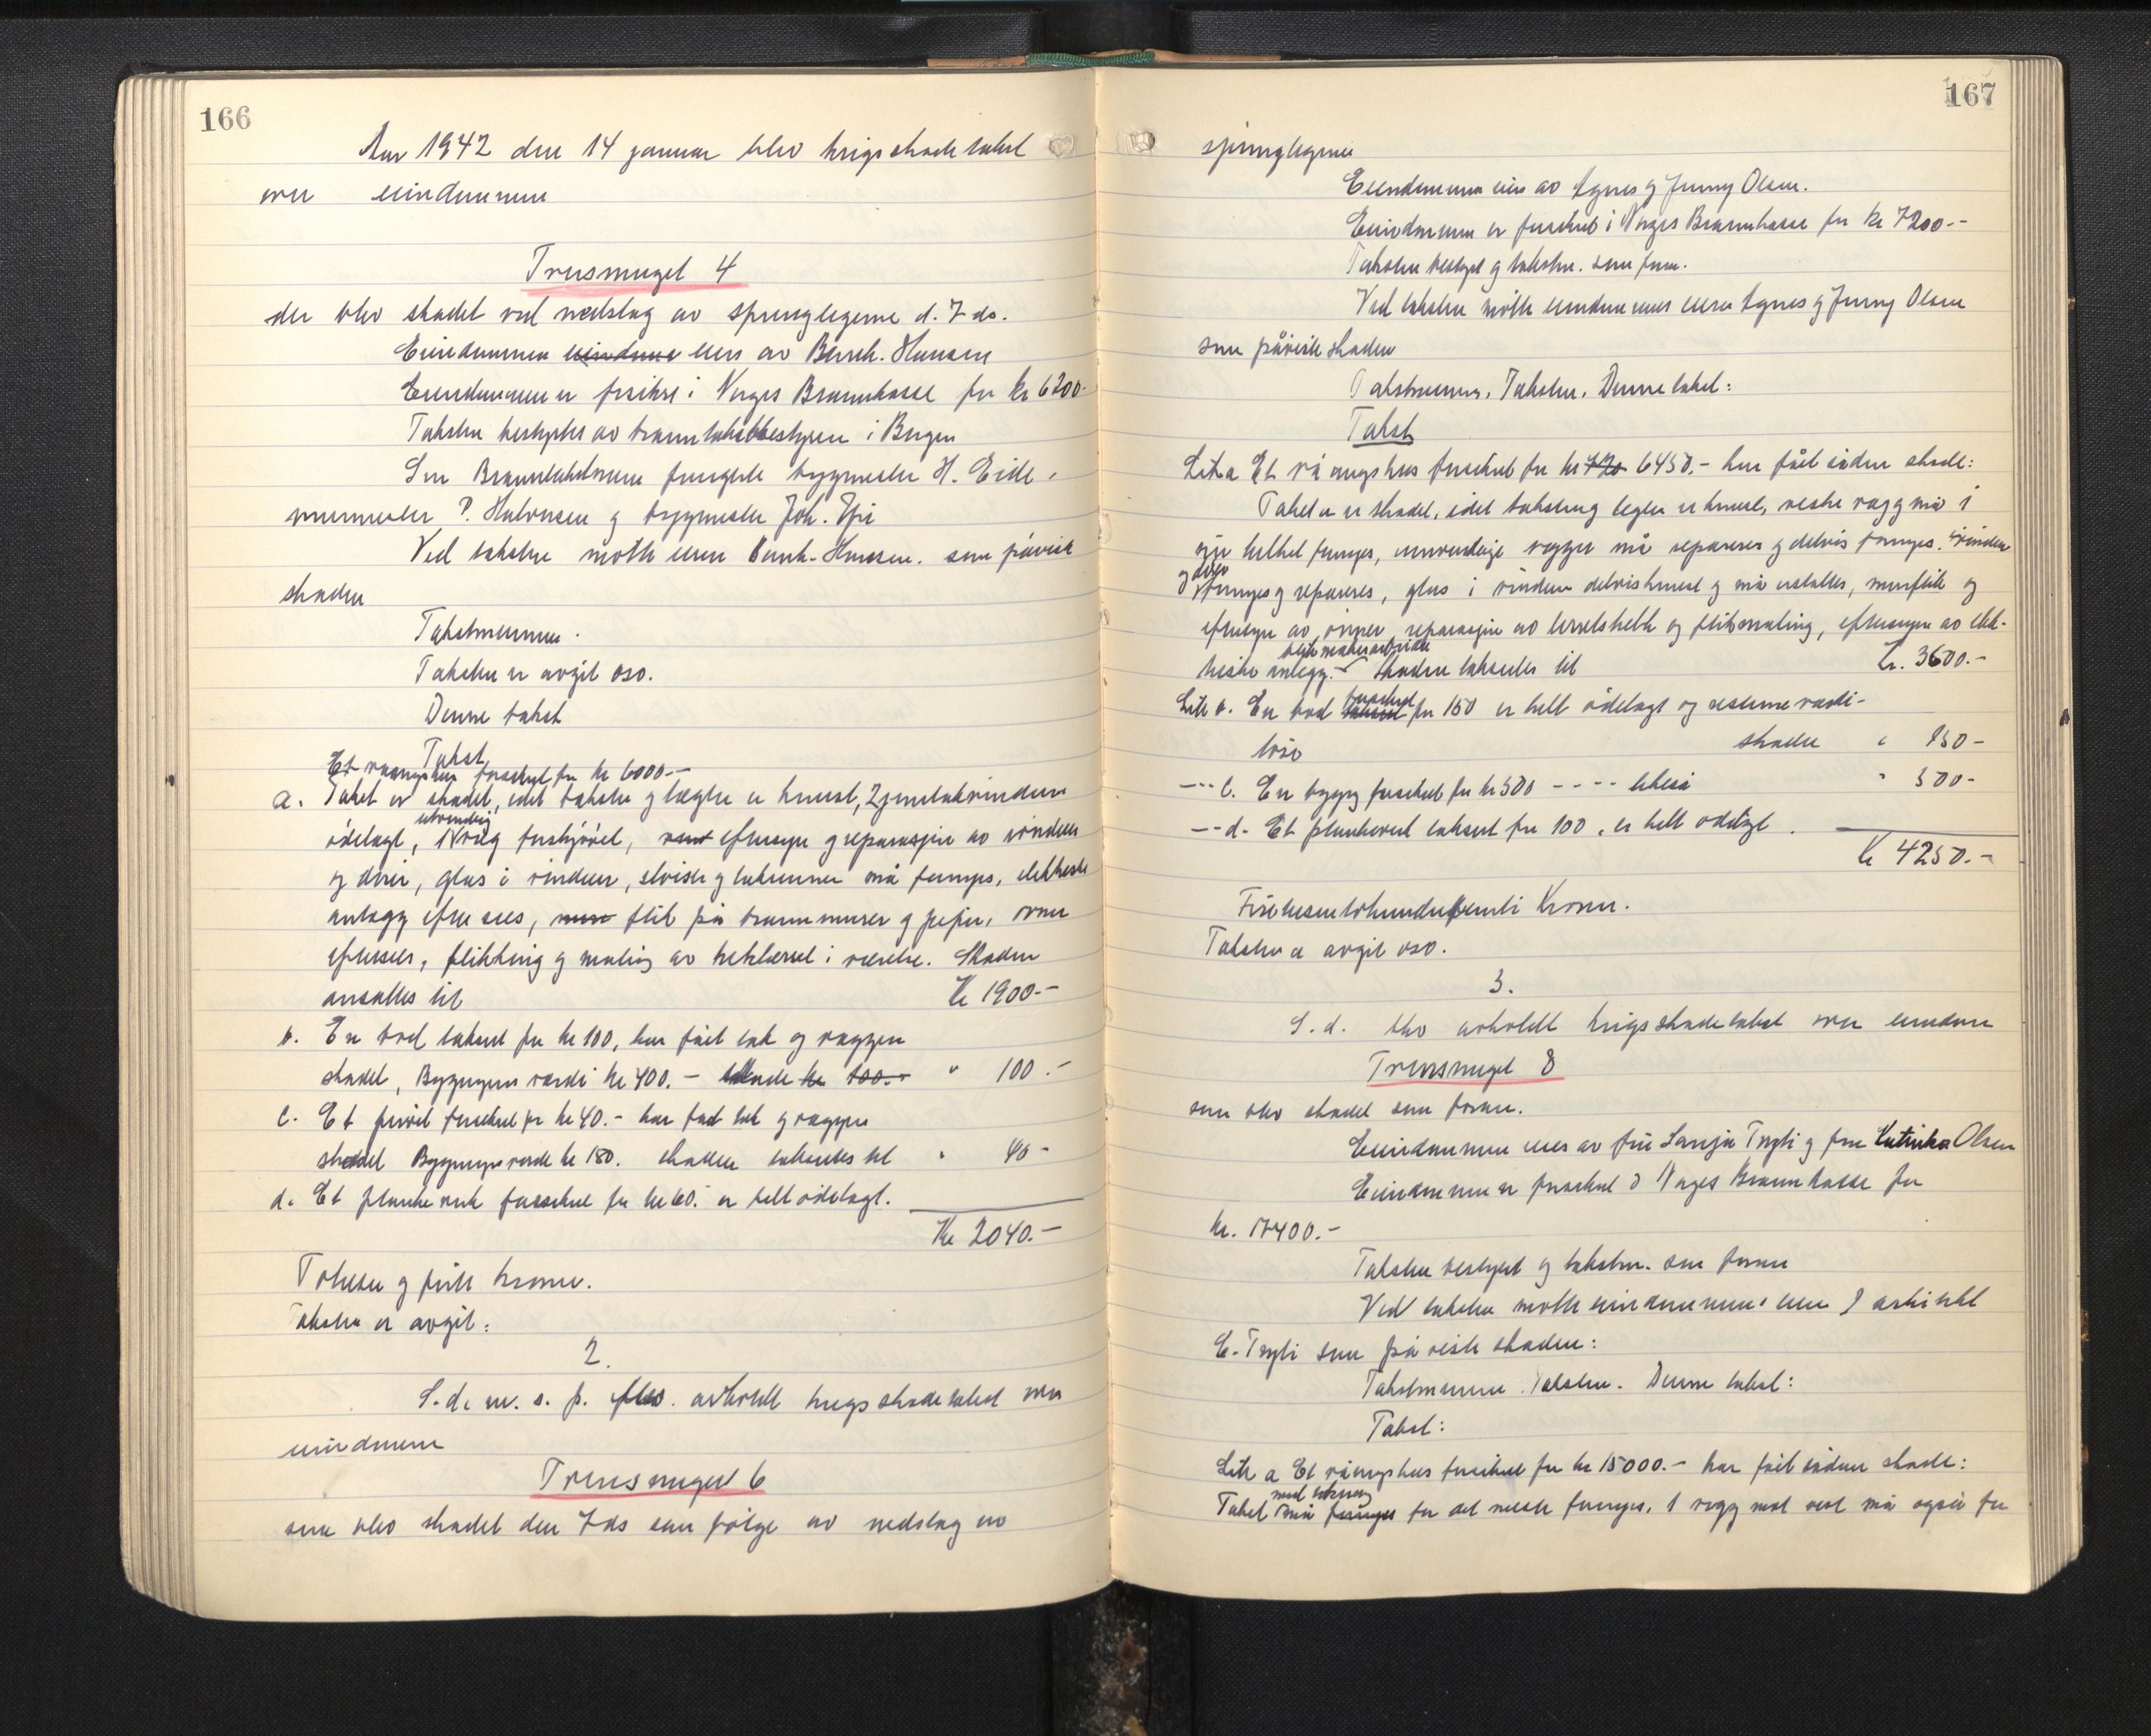 166
Aar 1942 den 14 januar blev krigsskadetakst
over eiendommen
Tressmuget 4
der blev skadet ved nedslag av spenglegeme d. 7 ds.
Eiendommen eies av Bernh. Hansen
Eiendommen er forsikret i Norges Brannkasse for kr 6200-
Taksten bestyrtes av branntakstbestyreren i Bergen
Som Branntakstmenn fungerte byggmester H. Eide,
murmester P. Halvorsen g byggmester Joh.
Ved taksten møtte eieren Bernh. Hansen. som påviste
skaden
Takstmennene.
Taksten er avgit oso.
Denne takst
Takst
Et vaaningshus forsikret for kr 6000.--
a. Taket er skadet, idet taksten g lægter er knust, 2 jerntakvinduer
ødelagt, utvendig væg forskjøvet, eftersyn g reparasjon av vinduer
g dører, glas i vinduer, g takrenner må fornyes, elektriske
anlægg eftersees, flik på brannmurer g piper, ovner
eftersees, flikking g maling av i værelse. Skaden
ansættes til Kr 1900.-
b. En bod taksert for kr 100, har fåit tak og vægger
skadet, Bygningens værdi kr 400.- skade kr 100.- " 100.-
c. Et privet forsikret for kr 40.- har faat tak g vægger
skadet Bygningsværdi kr 150. skaden takseres til " 40-
d. Et plankeverk forsikret for kr 60.- er helt ødelagt.
Kr 2040.-
Totusen g førti kroner.
Taksten er avgit:
2.
S. d. m. s. p. blev avholdt krigsskadetakst over
eiendommen
Tressmuget 6
som blev skadet den 7 ds som følge av nedslag av
167
spenglegeme
Eiendommen eies av Agnes g Jenny Olsen.
Eiendommen er forsikret i Norges Brannkasse for kr 7200.--
Taksten bestyret g takstm. som foran.
Ved taksten møtte eiendommens eiere Agnes g Jenny Olsen
som påviste skaden
Takstmennene. Taksten. Denne takst:
Takst
Litr a Et våningshus forsikret for kr 720 6450.- har fået sådan skade:
Taket er skadet, idet taksteng legter er knust, vestre vægg må i
sin helhet fornyes, innvendige vegger må repareres g delvis fornyes. vinduer
og dører fornyes g repareres, glas i vinduer delvis knust g må erstattes, murflikk og
eftersyn av ovner, reparasjon av g flikkmaling, eftersyn av elek-
triske anlegg. blikkenslagerarbeide Skaden takseres til kr. 3600.-
Litr b. En bod taksert forsikret for 150 er helt ødelagt og resterne verdi-
løse skaden " 150-
--- c. En bygg forsikret for kr 500 ---- likeså " 500-
--- d- Et plankeverk taksert for 100, er helt ødelagt.
kr 4250.-
Firetusentohundrefemti Kroner.
Taksten er avgit oso.
3.
S. d. blev avholdt krigsskadetakst over eiendommen
Tressmuget 8
som blev skadet som foran.
Eiendommen eies av fru Tryti g fru Katinka Olsen
Eiendommen er forsikret i Norges Brannkasse for
kr. 17400.-
Taksten bestyret g takstm. som foran
Ved taksten møtte eiendommens eier arkitekt
E. Tryti som påviste skaden:
Takstmennene. Taksten. Denne takst:
Takst:
Litr a Et våningshus forsikret for kr 15000.- har fåit sådan skade:
Taket med tekning må fornyes for det meste fornyes, 1 vegg mot vest må også for